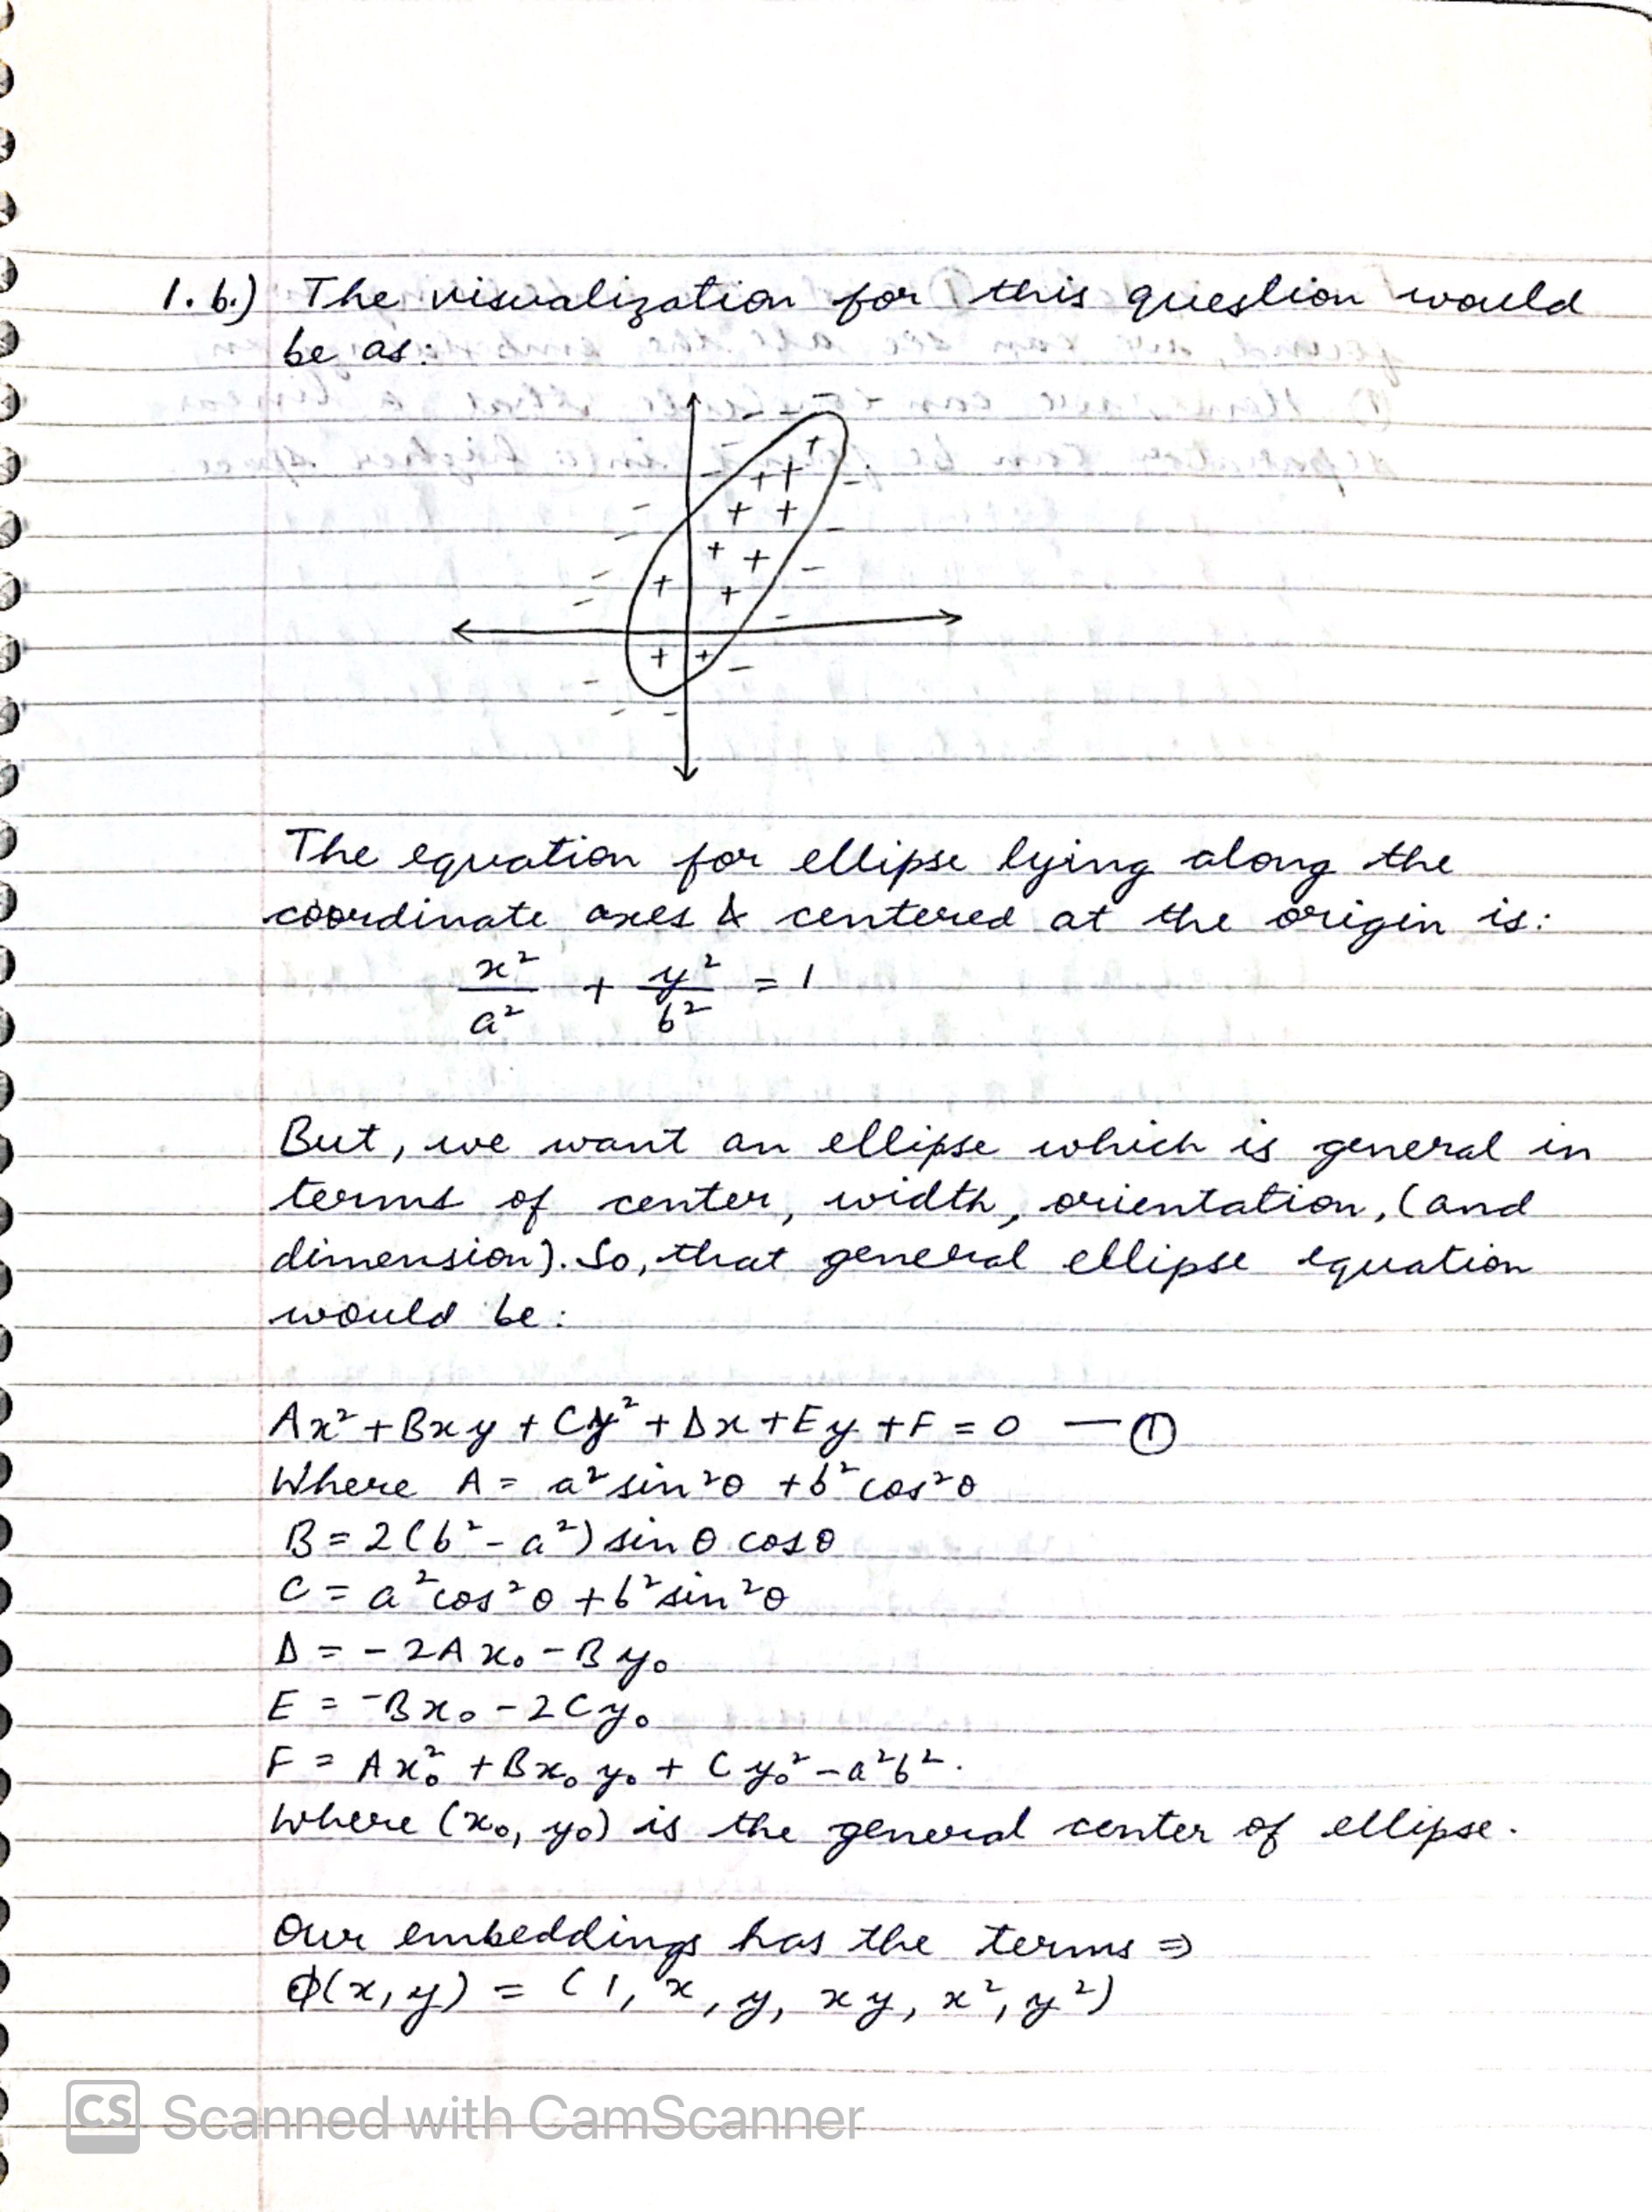 1. b.) The visualization for this question would
be as:
The equation for ellipse lying along the
coordinate axes & centered at the origin is:
x²/a² + y²/b² = 1
But, we want an ellipse which is general in
terms of center, width, orientation, (and
dimension). So, that general ellipse equation
would be:
Ax² + Bxy + Cy² + Dx + Ey + F = 0 — ①
Where A = a² sin²θ + b² cos²θ
B = 2(b² - a²) sin θ cos θ
C = a² cos²θ + b² sin²θ
D = - 2Ax₀ - By₀
E = -Bx₀ - 2Cy₀
F = Ax₀² + Bx₀y₀ + Cy₀² - a²b².
Where (x₀, y₀) is the general center of ellipse.
Our embeddings has the terms ⇒
Φ(x, y) = (1, x, y, xy, x², y²)
CS Scanned with CamScanner